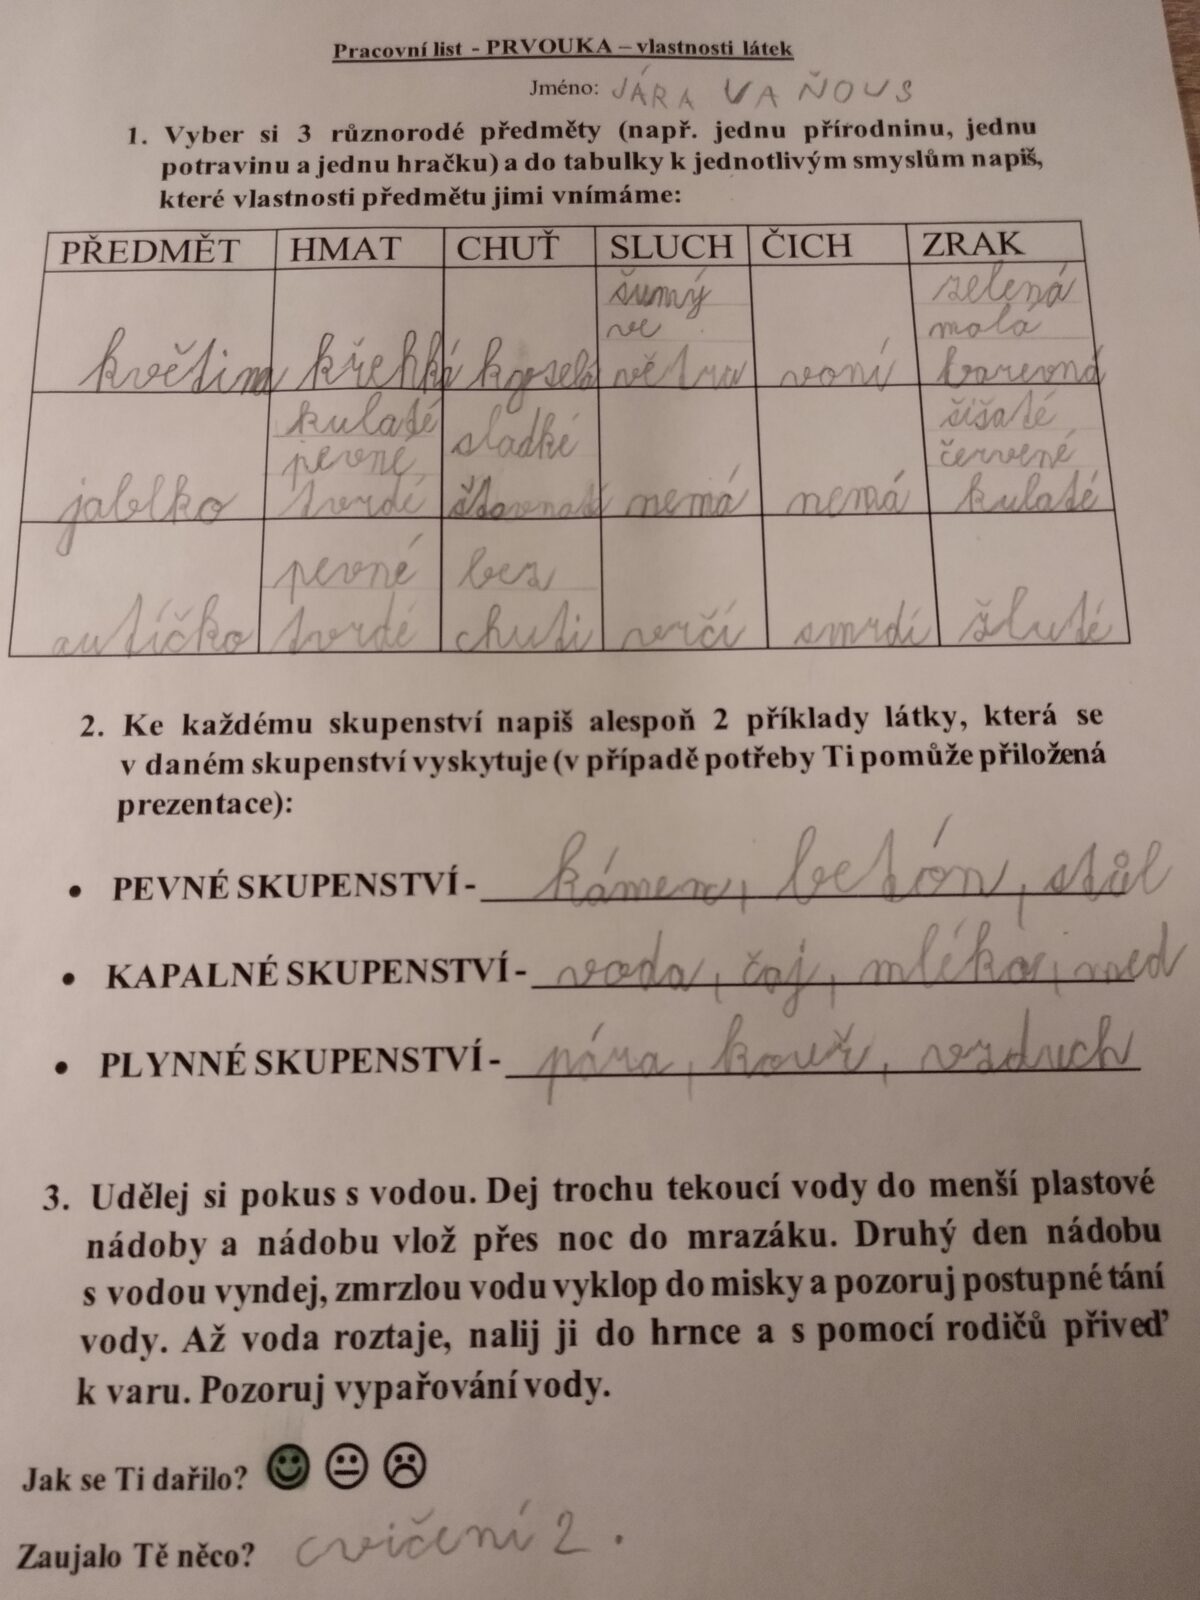 Pracovní list - PRVOUKA – vlastnosti látek
Jméno: JÁRA VAŇOUS
1. Vyber si 3 různorodé předměty (např. jednu přírodninu, jednu
potravinu a jednu hračku) a do tabulky k jednotlivým smyslům napiš,
které vlastnosti předmětu jimi vnímáme:
PŘEDMĚT HMAT CHUŤ SLUCH ČICH ZRAK
šumý zelená
ve malá
květina křehká větru voní barevná
kulaté šišaté
pevné sladké červené
jablko tvrdé nemá nemá kulaté
pevné bez
autíčko tvrdé chuti vrčí smrdí žluté
2. Ke každému skupenství napiš alespoň 2 příklady látky, která se
v daném skupenství vyskytuje (v případě potřeby Ti pomůže přiložená
prezentace):
• PEVNÉ SKUPENSTVÍ - kámen, betón, stůl
• KAPALNÉ SKUPENSTVÍ - voda, čaj, mléko, med
• PLYNNÉ SKUPENSTVÍ - pára, kouř, vzduch
3. Udělej si pokus s vodou. Dej trochu tekoucí vody do menší plastové
nádoby a nádobu vlož přes noc do mrazáku. Druhý den nádobu
s vodou vyndej, zmrzlou vodu vyklop do misky a pozoruj postupné tání
vody. Až voda roztaje, nalij ji do hrnce a s pomocí rodičů přiveď
k varu. Pozoruj vypařování vody.
Jak se Ti dařilo?
Zaujalo Tě něco? cvičení 2.